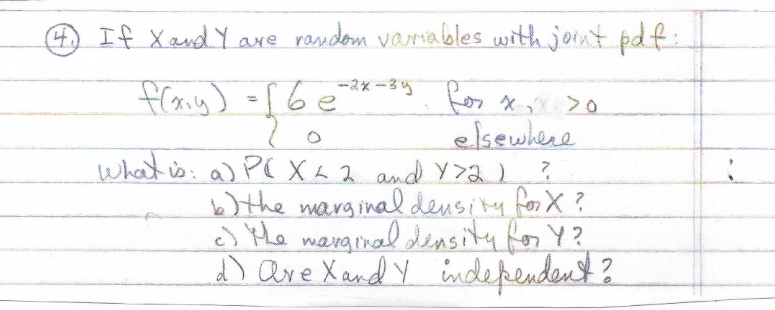 4. If X and Y are random variables with joint pdf:
f(x,y) = { 6 e^{-2x-3y} for x, >0
0 elsewhere
What is: a) P( X < 2 and Y>2 ) ?
b) the marginal density for X ?
c) the marginal density for Y ?
d) are X and Y independent ?